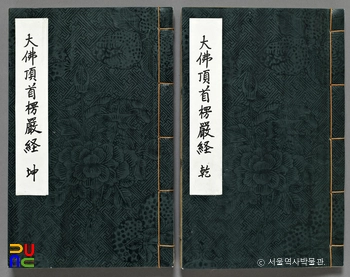 大佛頂首楞嚴経 坤
大佛頂首楞嚴経 乾
ⓒ 서울역사박물관